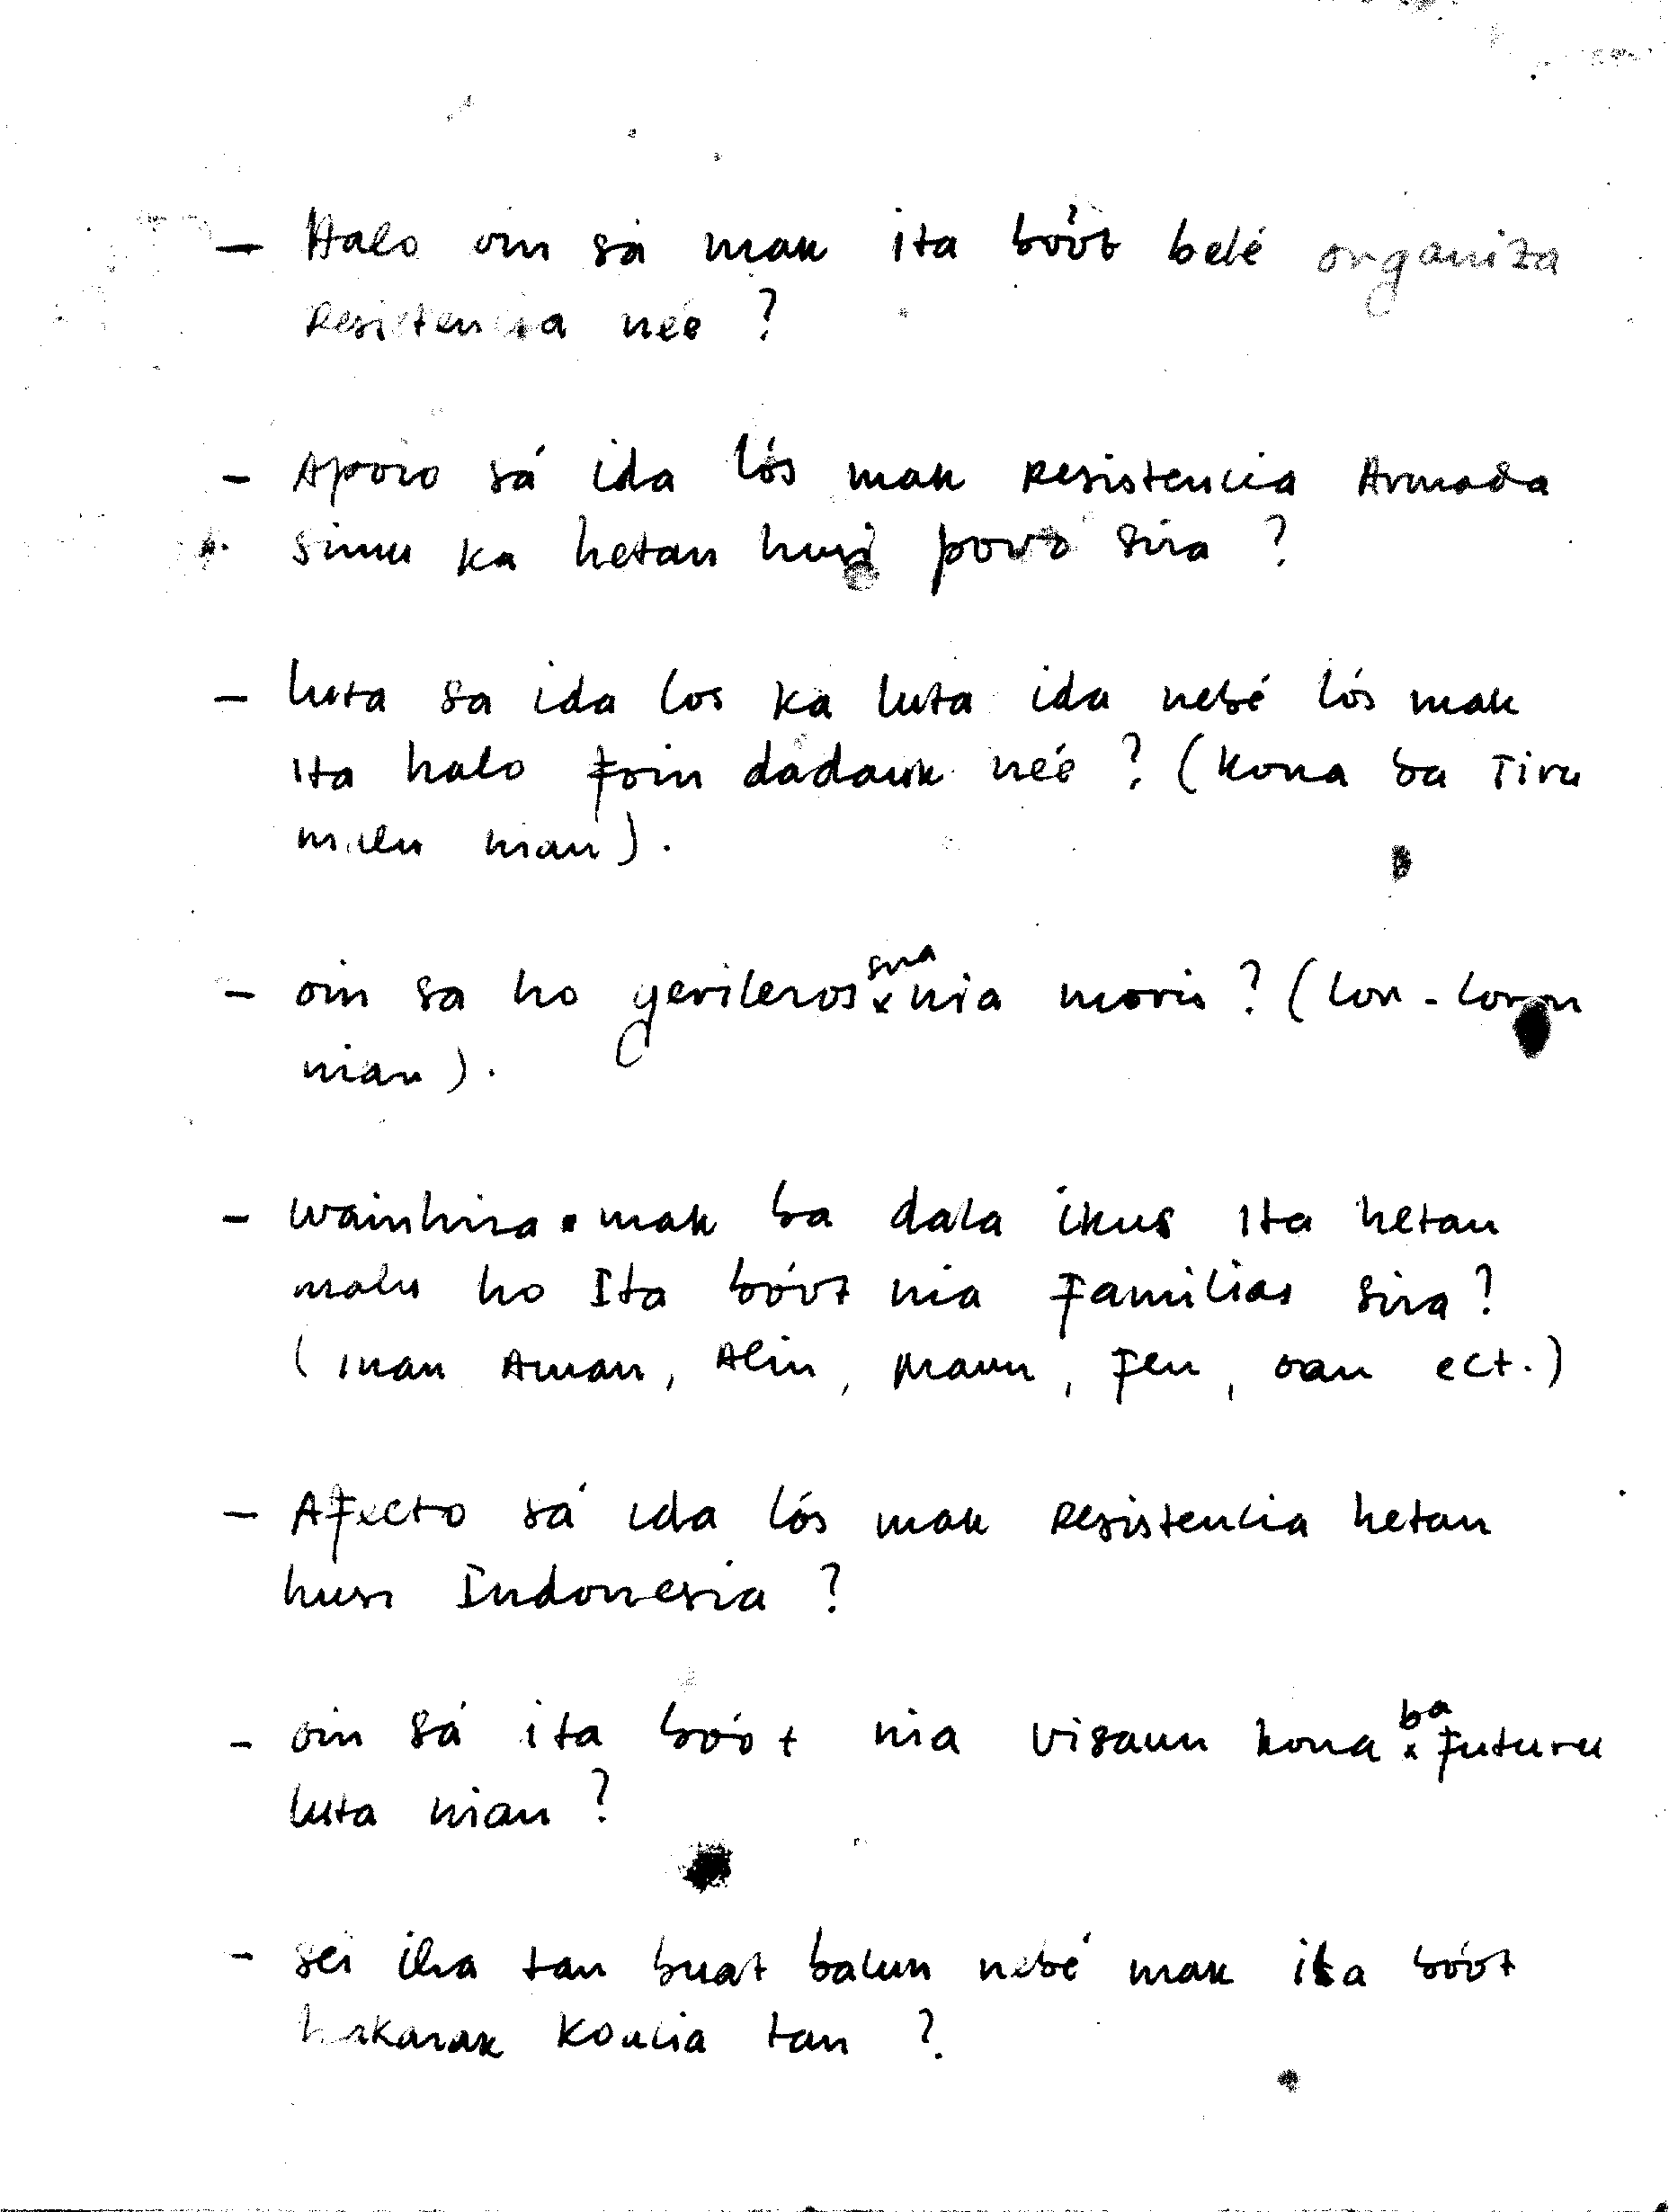 - Halo oin sá mak ita bóót belé organiza
Resistencia néé ?
- Apoio sá ida lós mak Resistencia Armada
simu ka hetan husi povo sira ?
- luta sa ida los ka luta ida nebé lós mak
Ita halo foin dadauk néé ? (kona ba Tiru
malu nian).
- oin sa ho gerileros sira nia moris ? (lon-loron
nian).
- wainhira mak ba dala ikus Ita hetan
malu ho Ita bóót nia Familias sira ?
(Inan Aman, Alin, Maun, Fen, oan ect.)
- Afecto sá ida lós mak Resistencia hetan
husi Indonesia ?
- oin sá ita bóót nia visaun kona ba Futuru
luta nian ?
- sei iha tan buat balun nebé mak ita bóót
hakarak koalia tan ?